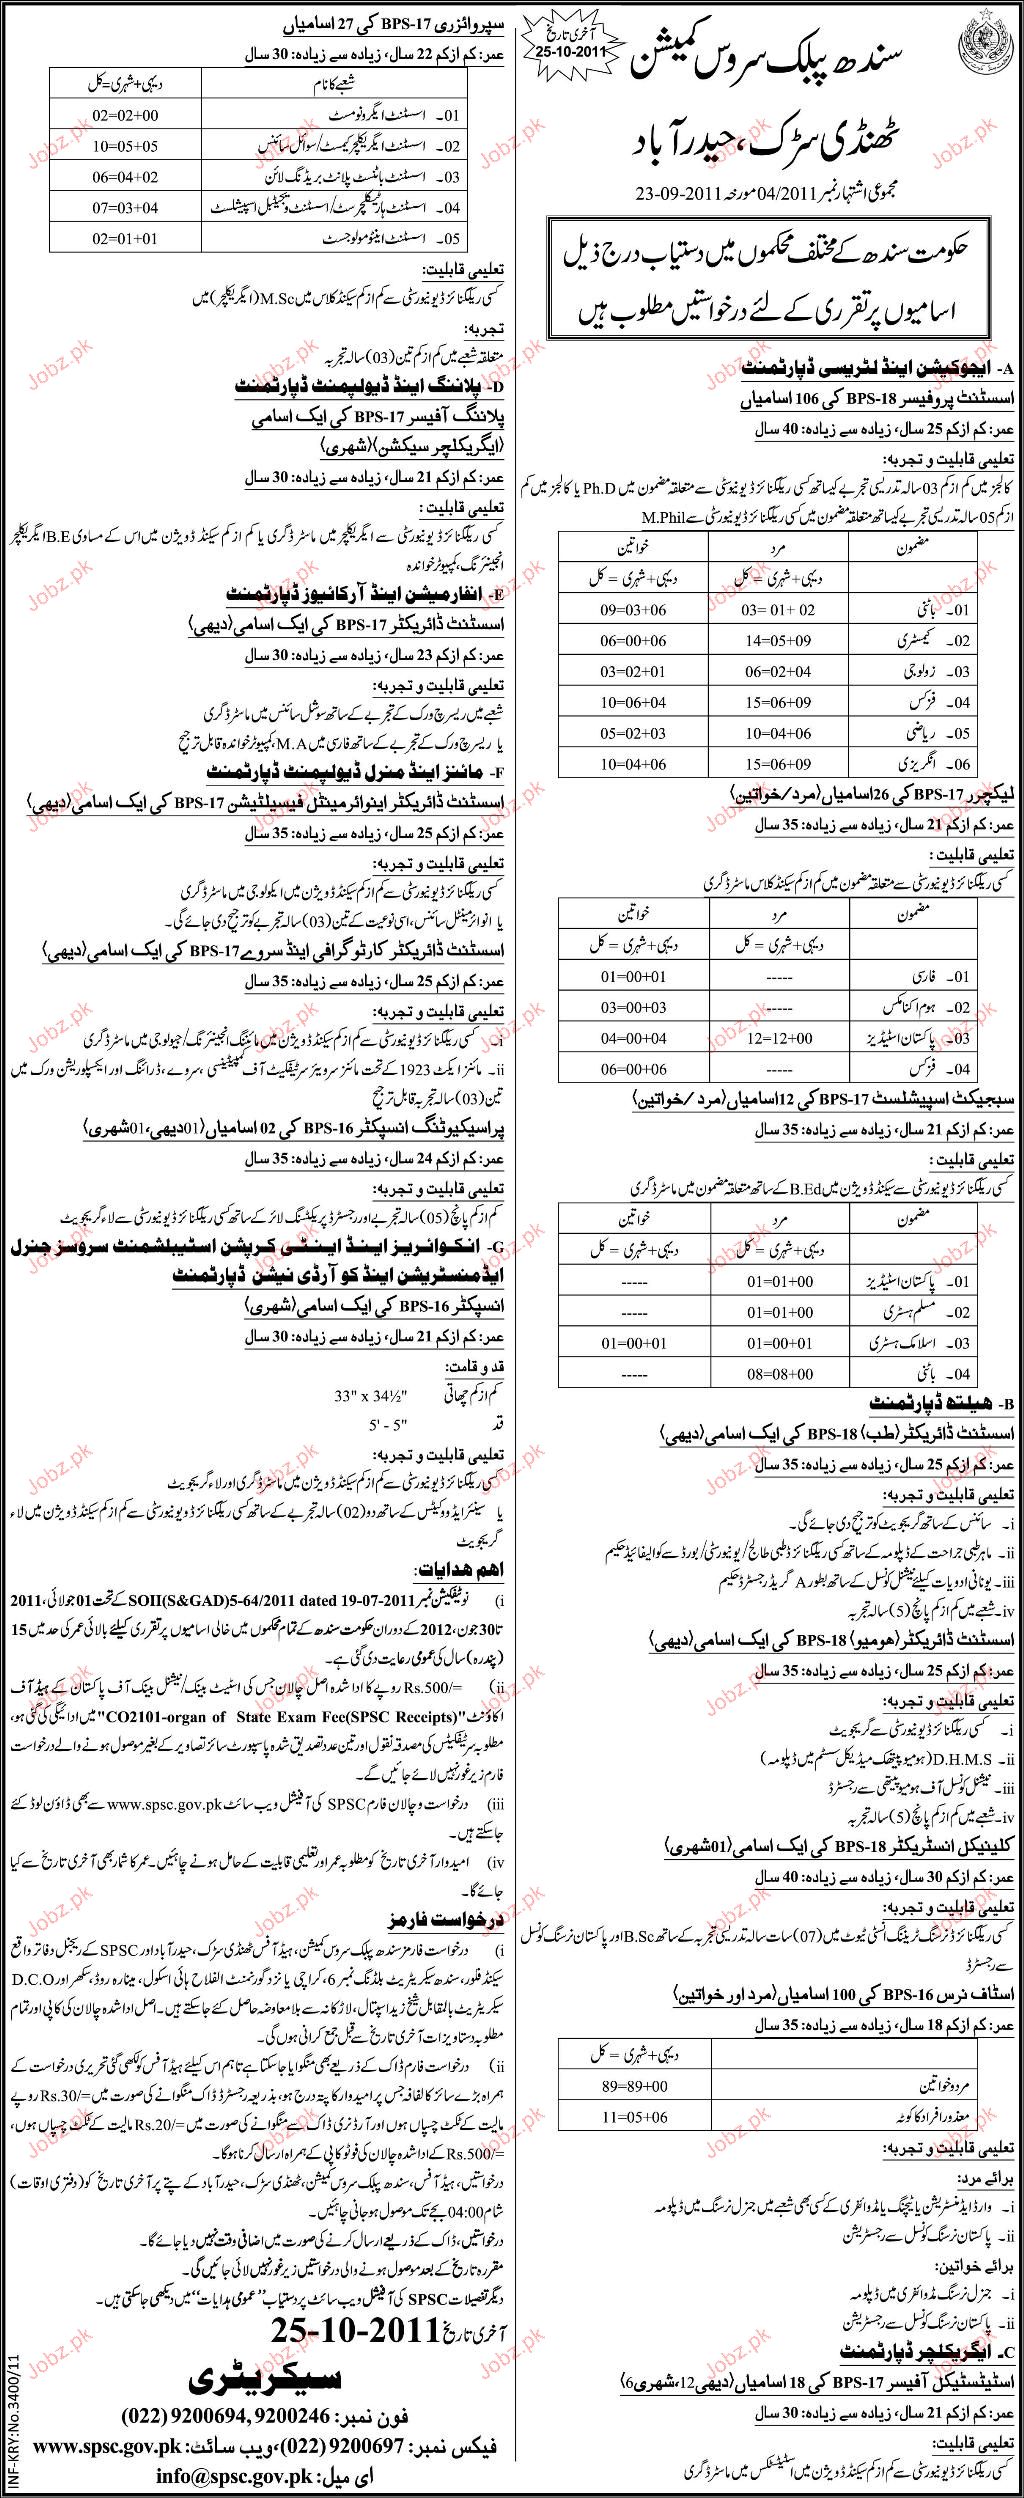 آخری تاریخ
25-10-2011
سندھ پبلک سروس کمیشن
ٹھنڈی سڑک، حیدرآباد
مجموعی اشتہار نمبر 04/2011 مورخہ 23-09-2011
حکومت سندھ کے مختلف محکموں میں دستیاب درج ذیل
اسامیوں پر تقرری کے لئے درخواستیں مطلوب ہیں
A- ایجوکیشن اینڈ لٹریسی ڈپارٹمنٹ
اسسٹنٹ پروفیسر BPS-18 کی 106 اسامیاں
عمر: کم از کم 25 سال، زیادہ سے زیادہ: 40 سال
تعلیمی قابلیت و تجربہ:
کالجز میں کم از کم 03 سالہ تدریسی تجربے کیساتھ کسی ریکگنائزڈ یونیورسٹی سے متعلقہ مضمون میں Ph.D یا کالجز میں کم
از کم 05 سالہ تدریسی تجربے کیساتھ متعلقہ مضمون میں کسی ریکگنائزڈ یونیورسٹی سے M.Phil
مضمون مرد خواتین
دیہی+شہری = کل دیہی+شہری = کل
01۔ باٹنی 03= 01+ 02 09=03+06
02۔ کیمسٹری 14=05+09 06=00+06
03۔ زولوجی 06=02+04 03=02+01
04۔ فزکس 15=06+09 10=06+04
05۔ ریاضی 10=04+06 05=02+03
06۔ انگریزی 15=06+09 10=04+06
لیکچرر BPS-17 کی 26 اسامیاں (مرد/خواتین)
عمر: کم از کم 21 سال، زیادہ سے زیادہ: 35 سال
تعلیمی قابلیت:
کسی ریکگنائزڈ یونیورسٹی سے متعلقہ مضمون میں کم از کم سیکنڈ کلاس ماسٹر ڈگری
مضمون مرد خواتین
دیہی+شہری = کل دیہی+شہری = کل
01۔ فارسی ----- 01=00+01
02۔ ہوم اکنامکس ----- 03=00+03
03۔ پاکستان اسٹیڈیز 12=12+00 04=00+04
04۔ فزکس ----- 06=00+06
سبجیکٹ اسپیشلسٹ BPS-17 کی 12 اسامیاں (مرد/خواتین)
عمر: کم از کم 21 سال، زیادہ سے زیادہ: 35 سال
تعلیمی قابلیت:
کسی ریکگنائزڈ یونیورسٹی سے سیکنڈ ڈویژن میں B.Ed کے ساتھ متعلقہ مضمون میں ماسٹر ڈگری
مضمون مرد خواتین
دیہی+شہری = کل دیہی+شہری = کل
01۔ پاکستان اسٹیڈیز 01=01+00 -----
02۔ مسلم ہسٹری 01=01+00 -----
03۔ اسلامک ہسٹری 01=00+01 01=00+01
04۔ باٹنی 08=08+00 -----
B- ہیلتھ ڈپارٹمنٹ
اسسٹنٹ ڈائریکٹر (طب) BPS-18 کی ایک اسامی (دیہی)
عمر: کم از کم 25 سال، زیادہ سے زیادہ: 35 سال
تعلیمی قابلیت و تجربہ:
i۔ سائنس کے ساتھ گریجویٹ کو ترجیح دی جائے گی۔
ii۔ ماہر طبی جراحت کے ڈپلومہ کے ساتھ کسی ریکگنائزڈ طبی کالج/یونیورسٹی/بورڈ سے کوالیفائیڈ حکیم
iii۔ یونانی ادویات کیلئے نیشنل کونسل کے ساتھ بطور A گریڈ رجسٹرڈ حکیم
iv۔ شعبے میں کم از کم پانچ (5) سالہ تجربہ
اسسٹنٹ ڈائریکٹر (ہومیو) BPS-18 کی ایک اسامی (دیہی)
عمر: کم از کم 25 سال، زیادہ سے زیادہ: 35 سال
تعلیمی قابلیت و تجربہ:
i۔ کسی ریکگنائزڈ یونیورسٹی سے گریجویٹ
ii۔ D.H.M.S (ہومیو پیتھک میڈیکل سسٹم میں ڈپلومہ)
iii۔ نیشنل کونسل آف ہومیوپیتھی سے رجسٹرڈ
iv۔ شعبے میں کم از کم پانچ (5) سالہ تجربہ
کلینیکل انسٹریکٹر BPS-18 کی ایک اسامی (01 شہری)
عمر: کم از کم 30 سال، زیادہ سے زیادہ: 40 سال
تعلیمی قابلیت و تجربہ:
کسی ریکگنائزڈ نرسنگ ٹریننگ انسٹی ٹیوٹ میں (07) سات سالہ تدریسی تجربہ کے ساتھ B.Sc اور پاکستان نرسنگ کونسل
سے رجسٹرڈ
اسٹاف نرس BPS-16 کی 100 اسامیاں (مرد اور خواتین)
عمر: کم از کم 18 سال، زیادہ سے زیادہ: 35 سال
دیہی+شہری = کل
مرد و خواتین 89=89+00
معذور افراد کا کوٹہ 11=05+06
تعلیمی قابلیت و تجربہ:
برائے مرد:
i۔ وارڈ ایڈمنسٹریشن یا ٹیچنگ یا مڈوائفری کے کسی بھی شعبے میں جنرل نرسنگ میں ڈپلومہ
ii۔ پاکستان نرسنگ کونسل سے رجسٹریشن
برائے خواتین:
i۔ جنرل نرسنگ مڈوائفری میں ڈپلومہ
ii۔ پاکستان نرسنگ کونسل سے رجسٹریشن
C- ایگریکلچر ڈپارٹمنٹ
اسٹیٹسٹیکل آفیسر BPS-17 کی 18 اسامیاں (دیہی 12، شہری 6)
عمر: کم از کم 21 سال، زیادہ سے زیادہ: 30 سال
تعلیمی قابلیت:
کسی ریکگنائزڈ یونیورسٹی سے کم از کم سیکنڈ ڈویژن میں اسٹیٹسٹکس میں ماسٹر ڈگری
سپروائزری BPS-17 کی 27 اسامیاں
عمر: کم از کم 22 سال، زیادہ سے زیادہ: 30 سال
شعبے کا نام دیہی+شہری=کل
01۔ اسسٹنٹ ایگرونومسٹ 02=02+00
02۔ اسسٹنٹ ایگریکلچر کیمسٹ/سوائل سائنس 10=05+05
03۔ اسسٹنٹ باٹنسٹ پلانٹ بریڈنگ لائن 06=04+02
04۔ اسسٹنٹ ہارٹیکلچرسٹ/اسسٹنٹ ویجیٹیبل اسپیشلسٹ 07=03+04
05۔ اسسٹنٹ اینٹومولوجسٹ 02=01+01
تعلیمی قابلیت:
کسی ریکگنائزڈ یونیورسٹی سے کم از کم سیکنڈ کلاس میں M.Sc (ایگریکلچر) میں
تجربہ:
متعلقہ شعبے میں کم از کم تین (03) سالہ تجربہ
D- پلاننگ اینڈ ڈیولپمنٹ ڈپارٹمنٹ
پلاننگ آفیسر BPS-17 کی ایک اسامی
(ایگریکلچر سیکشن) (شہری)
عمر: کم از کم 21 سال، زیادہ سے زیادہ: 30 سال
تعلیمی قابلیت:
کسی ریکگنائزڈ یونیورسٹی سے ایگریکلچر میں ماسٹر ڈگری یا کم از کم سیکنڈ ڈویژن میں اس کے مساوی B.E ایگریکلچر
انجینئرنگ، کمپیوٹر خواندہ
E- انفارمیشن اینڈ آرکائیوز ڈپارٹمنٹ
اسسٹنٹ ڈائریکٹر BPS-17 کی ایک اسامی (دیہی)
عمر: کم از کم 23 سال، زیادہ سے زیادہ: 30 سال
تعلیمی قابلیت و تجربہ:
شعبے میں ریسرچ ورک کے تجربے کے ساتھ سوشل سائنس میں ماسٹر ڈگری
یا ریسرچ ورک کے تجربے کے ساتھ فارسی میں M.A، کمپیوٹر خواندہ قابل ترجیح
F- مائنز اینڈ منرل ڈیولپمنٹ ڈپارٹمنٹ
اسسٹنٹ ڈائریکٹر اینوائرمینٹل فیسیلٹیشن BPS-17 کی ایک اسامی (دیہی)
عمر: کم از کم 25 سال، زیادہ سے زیادہ: 35 سال
تعلیمی قابلیت و تجربہ:
کسی ریکگنائزڈ یونیورسٹی سے کم از کم سیکنڈ ڈویژن میں ایکولوجی میں ماسٹر ڈگری
یا انوائرمینٹل سائنس، اسی نوعیت کے تین (03) سالہ تجربے کو ترجیح دی جائے گی۔
اسسٹنٹ ڈائریکٹر کارٹوگرافی اینڈ سروے BPS-17 کی ایک اسامی (دیہی)
عمر: کم از کم 25 سال، زیادہ سے زیادہ: 35 سال
تعلیمی قابلیت و تجربہ:
i۔ کسی ریکگنائزڈ یونیورسٹی سے کم از کم سیکنڈ ڈویژن میں مائننگ انجینئرنگ/جیولوجی میں ماسٹر ڈگری
ii۔ مائنز ایکٹ 1923 کے تحت مائنز سرویئر سرٹیفکیٹ آف کمپیٹینسی، سروے، ڈرائنگ اور ایکسپلوریشن ورک میں
تین (03) سالہ تجربہ قابل ترجیح
پراسیکیوٹنگ انسپکٹر BPS-16 کی 02 اسامیاں (01 دیہی، 01 شہری)
عمر: کم از کم 24 سال، زیادہ سے زیادہ: 35 سال
تعلیمی قابلیت و تجربہ:
کم از کم پانچ (05) سالہ تجربے اور رجسٹرڈ پریکٹسنگ لائر کے ساتھ کسی ریکگنائزڈ یونیورسٹی سے لاء گریجویٹ
G- انکوائریز اینڈ اینٹی کرپشن اسٹیبلشمنٹ سروسز جنرل
ایڈمنسٹریشن اینڈ کوآرڈی نیشن ڈپارٹمنٹ
انسپکٹر BPS-16 کی ایک اسامی (شہری)
عمر: کم از کم 21 سال، زیادہ سے زیادہ: 30 سال
قد و قامت:
کم از کم چھاتی 33" x 34½"
قد 5' - 5"
تعلیمی قابلیت و تجربہ:
کسی ریکگنائزڈ یونیورسٹی سے کم از کم سیکنڈ ڈویژن میں ماسٹر ڈگری اور لاء گریجویٹ
یا سینئر ایڈووکیٹس کے ساتھ دو (02) سالہ تجربے کے ساتھ کسی ریکگنائزڈ یونیورسٹی سے کم از کم سیکنڈ ڈویژن میں لاء
گریجویٹ
اہم ہدایات:
i) نوٹیفکیشن نمبر SOII(S&GAD)5-64/2011 dated 19-07-2011 کے تحت 01 جولائی، 2011
تا 30 جون، 2012 کے دوران حکومت سندھ کے تمام محکموں میں خالی اسامیوں پر تقرری کیلئے بالائی عمر کی حد میں 15
(پندرہ) سال کی عمومی رعایت دی گئی ہے۔
ii) Rs.500/= روپے کا ادا شدہ اصل چالان جس کی اسٹیٹ بینک/نیشنل بینک آف پاکستان کے ہیڈ آف
اکاؤنٹ "CO2101-organ of State Exam Fee(SPSC Receipts)" میں ادائیگی کی گئی ہو،
مطلوبہ سرٹیفکیٹس کی مصدقہ نقول اور تین عدد تصدیق شدہ پاسپورٹ سائز تصاویر کے بغیر موصول ہونے والے درخواست
فارم زیر غور نہیں لائے جائیں گے۔
iii) درخواست و چالان فارم SPSC کی آفیشل ویب سائٹ www.spsc.gov.pk سے بھی ڈاؤن لوڈ کئے
جا سکتے ہیں۔
iv) امیدوار آخری تاریخ کو مطلوبہ عمر اور تعلیمی قابلیت کے حامل ہونے چاہئیں۔ عمر کا شمار بھی آخری تاریخ سے کیا
جائے گا۔
درخواست فارمز
i) درخواست فارمز سندھ پبلک سروس کمیشن، ہیڈ آفس ٹھنڈی سڑک، حیدرآباد اور SPSC کے ریجنل دفاتر واقع
سیکنڈ فلور، سندھ سیکریٹریٹ بلڈنگ نمبر 6، کراچی یا نزد گورنمنٹ الفلاح ہائی اسکول، مینارہ روڈ، سکھر اور D.C.O
سیکریٹریٹ بالمقابل شیخ زید اسپتال، لاڑکانہ سے بلا معاوضہ حاصل کئے جا سکتے ہیں۔ اصل ادا شدہ چالان کی کاپی اور تمام
مطلوبہ دستاویزات آخری تاریخ سے قبل جمع کرانی ہوں گی۔
ii) درخواست فارم ڈاک کے ذریعے بھی منگوایا جا سکتا ہے تاہم اس کیلئے ہیڈ آفس کو لکھی گئی تحریری درخواست کے
ہمراہ بڑے سائز کا لفافہ جس پر امیدوار کا پتہ درج ہو، بذریعہ رجسٹرڈ ڈاک منگوانے کی صورت میں Rs.30/= روپے
مالیت کے ٹکٹ چسپاں ہوں اور آرڈنری ڈاک سے منگوانے کی صورت میں Rs.20/= مالیت کے ٹکٹ چسپاں ہوں،
Rs.500/= کے ادا شدہ چالان کی فوٹو کاپی کے ہمراہ ارسال کرنا ہوگا۔
درخواستیں، ہیڈ آفس، سندھ پبلک سروس کمیشن، ٹھنڈی سڑک، حیدرآباد کے پتے پر آخری تاریخ کو (دفتری اوقات)
شام 04:00 بجے تک موصول ہو جانی چاہئیں۔
درخواستیں، ڈاک کے ذریعے ارسال کرنے کی صورت میں اضافی وقت نہیں دیا جائے گا۔
مقررہ تاریخ کے بعد موصول ہونے والی درخواستیں زیر غور نہیں لائی جائیں گی۔
دیگر تفصیلات SPSC کی آفیشل ویب سائٹ پر دستیاب "عمومی ہدایات" میں دیکھی جا سکتی ہیں۔
آخری تاریخ 25-10-2011
سیکریٹری
فون نمبر: 9200246 ,9200694 (022)
فیکس نمبر: 9200697 (022)، ویب سائٹ: www.spsc.gov.pk
ای میل: info@spsc.gov.pk
INF-KRY:No.3400/11
Jobz.pk